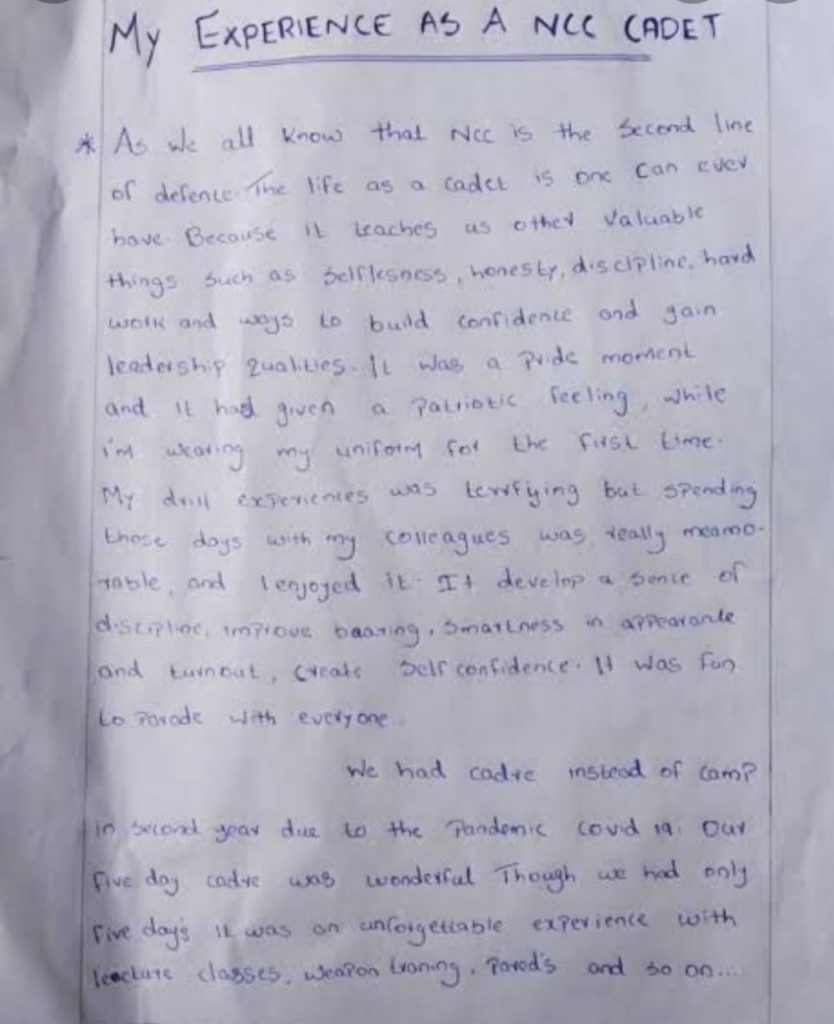 My EXPERIENCE AS A NCC CADET
* As we all know that NCC is the second line
of defence. The life as a cadet is one can ever
have. Becouse it teaches us other valuable
things such as selflesness, honesty, discipline, hard
work and ways to build confidence and gain
leadership qualities. It was a Pride moment
and it had given a Patriotic feeling, while
i'm wearing my uniform for the first time.
My drill experiences was terrfying but spending
those days with my colleagues was really meamo-
rable, and I enjoyed it. It develop a sence of
discipline, improve bearing, smartness in appearance
and turnout, create self confidence. It was fun
to Parade with everyone.
We had cadre instead of camp
in second year due to the Pandemic covid 19. Our
five day cadre was wonderful Though we had only
five day's it was an unforgettable experience with
leacture classes, weapon traning, Parod's and so on...